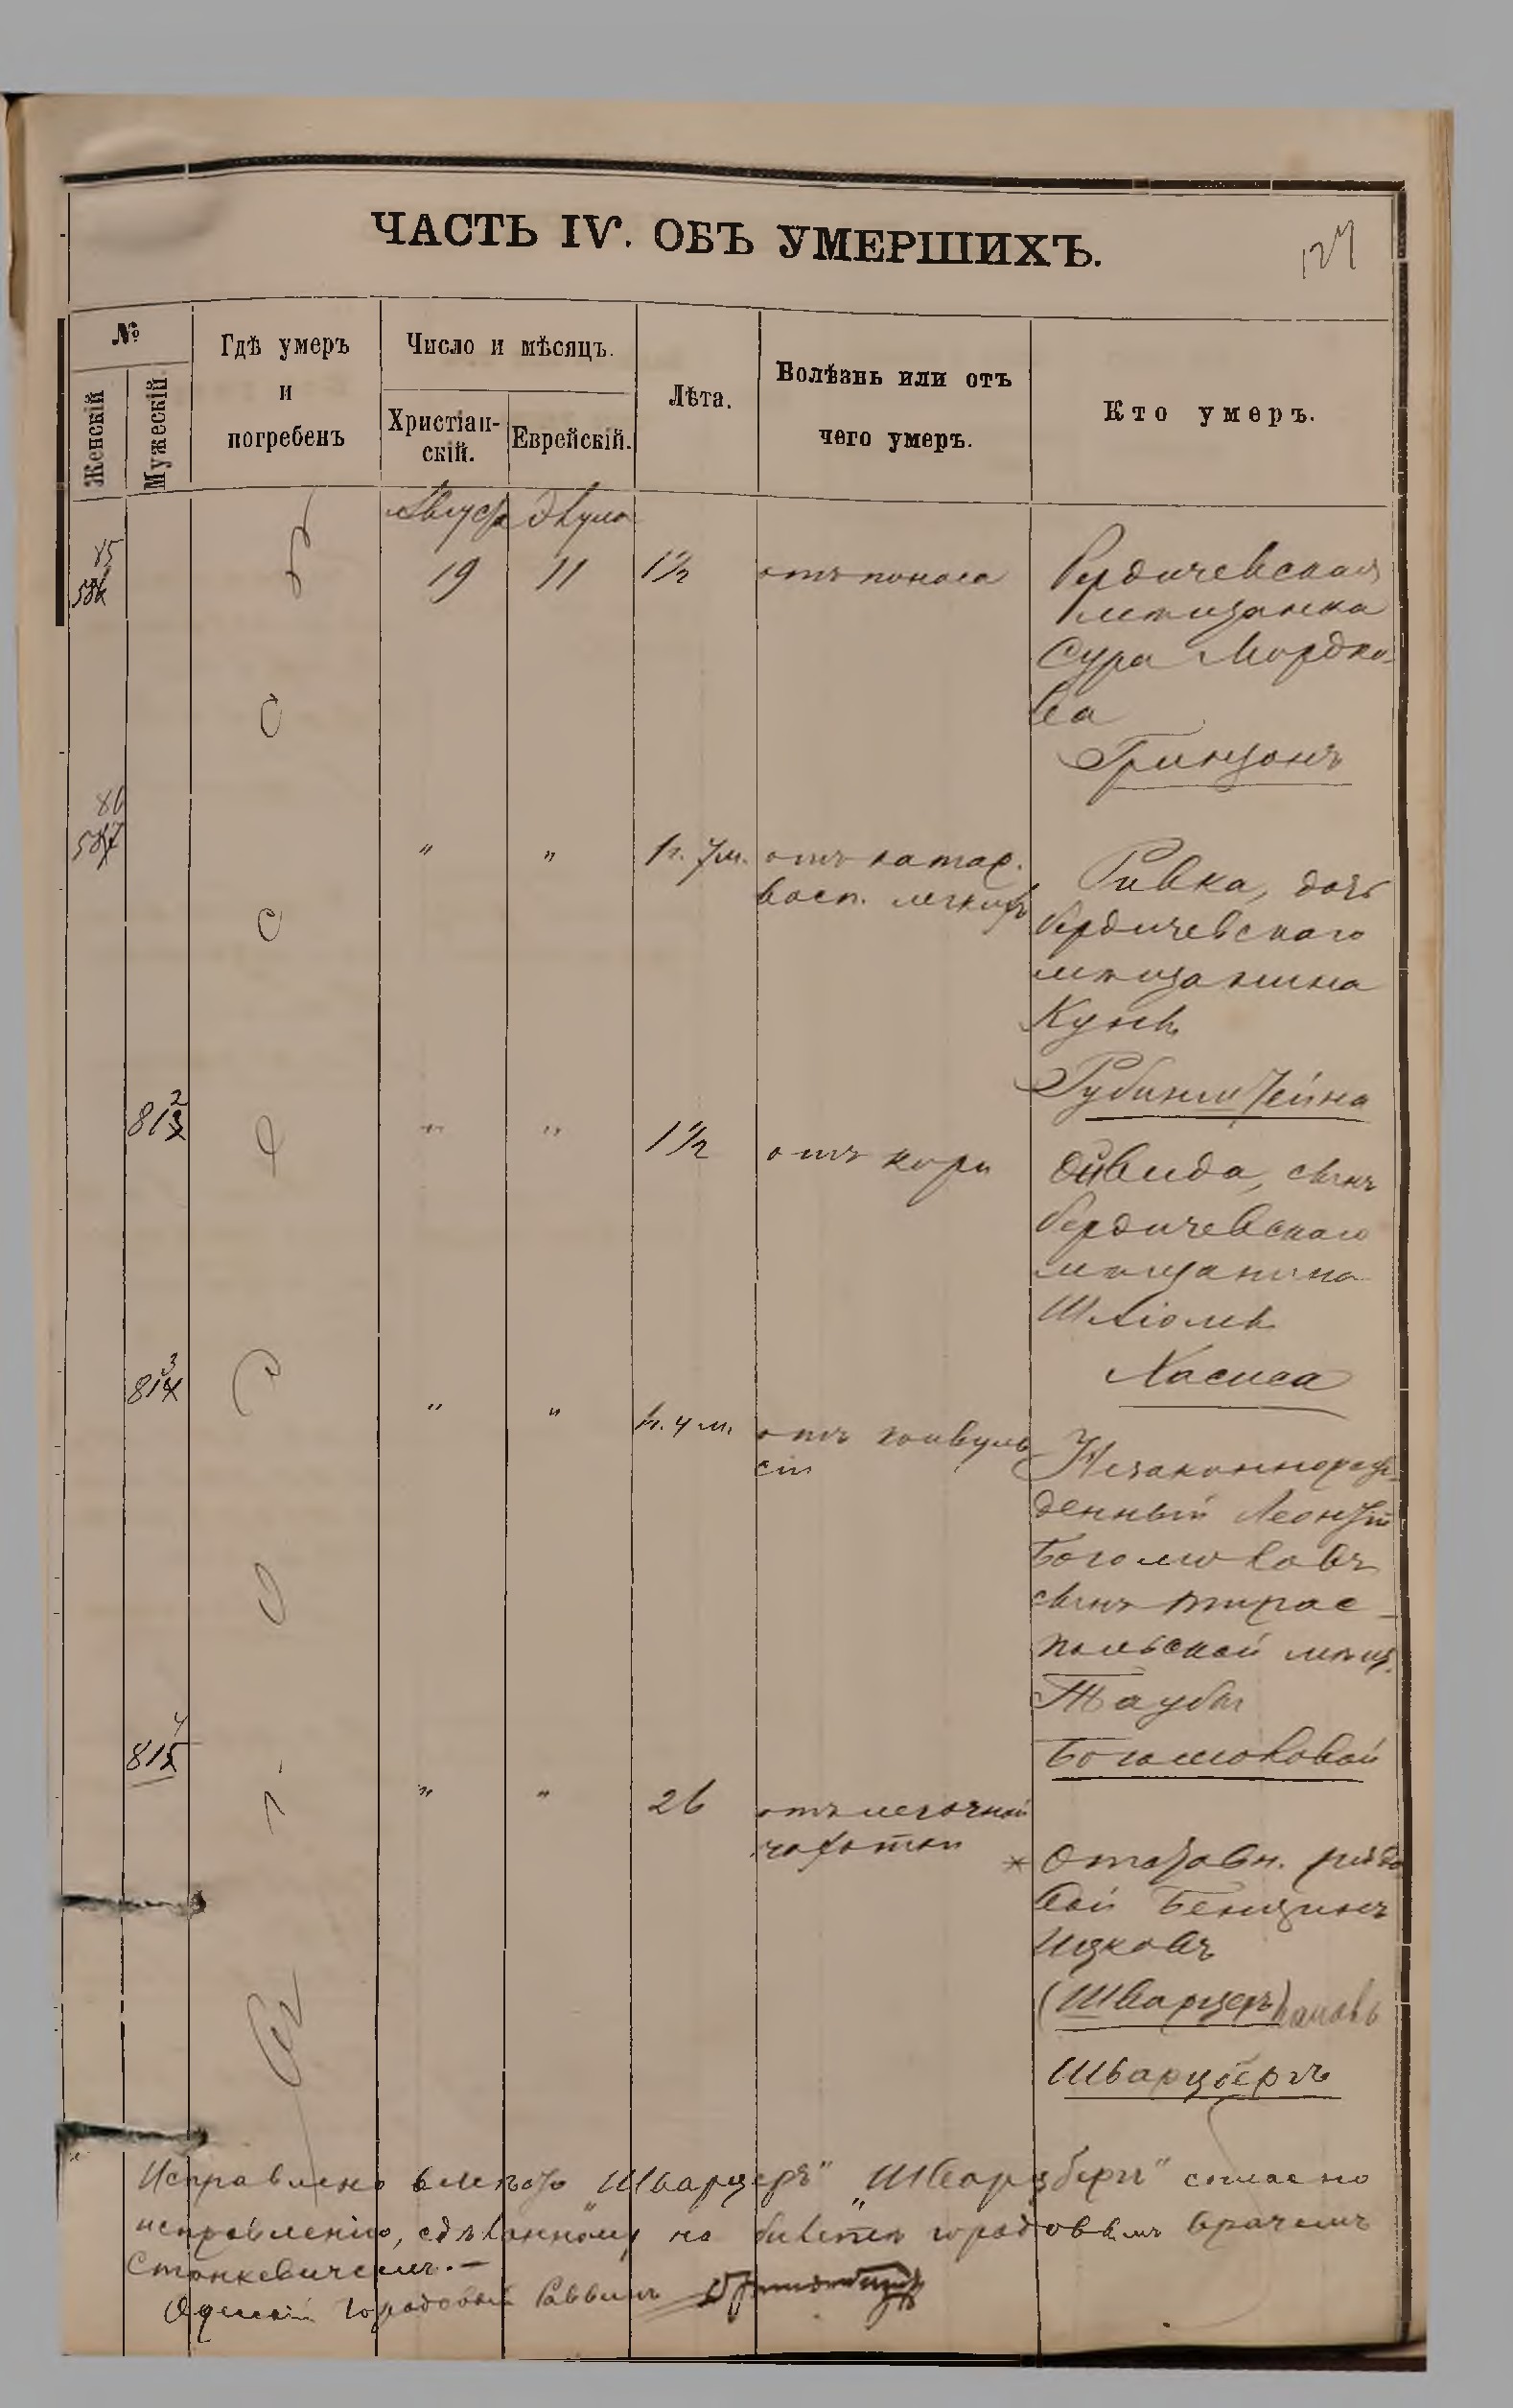 ЧАСТЬ IV. ОБЪ УМЕРШИХЪ.
127
№
Женскій
Мужескій
Гдѣ умеръ
и
погребенъ
Число и мѣсяцъ.
Христіан-
скій.
Еврейскій.
Лѣта.
Болѣзнь или отъ
чего умеръ.
Кто умеръ.
Августа Элула
85
586
19 11 1½ отъ поноса
Бердичевская
мѣщанка
Сура Мордко-
ва
Гринцонъ
86
587
" " 1 г. 7 м. отъ катар.
восп. легкихъ
Ривка, дочь
бердичевскаго
мѣщанина
Куны
Рубинштейна
2
813
" " 1½ отъ кори
Овида, сынъ
бердичевскаго
мѣщанина
Шлiомы
Хасиса
3
814
" " 1 г. 4 м. отъ конвуль
сіи
Незаконнорож-
денный Леонтій
Богомоловъ
сынъ тирас-
польской мѣщ.
Таубы
Богомоловой
4
815
" " 26 отъ легочной
чахотки
* Отставн. рядо
вой Бенціонъ
Ицковъ
(Шварцеръ)
Шварцбергъ
Исправлено вмѣсто „Шварцеръ" „Шварцбергъ" согласно
исправленію, сдѣланному на билетѣ городовымъ врачемъ
Станкевичемъ.—
Одесскій Городовой Раввинъ